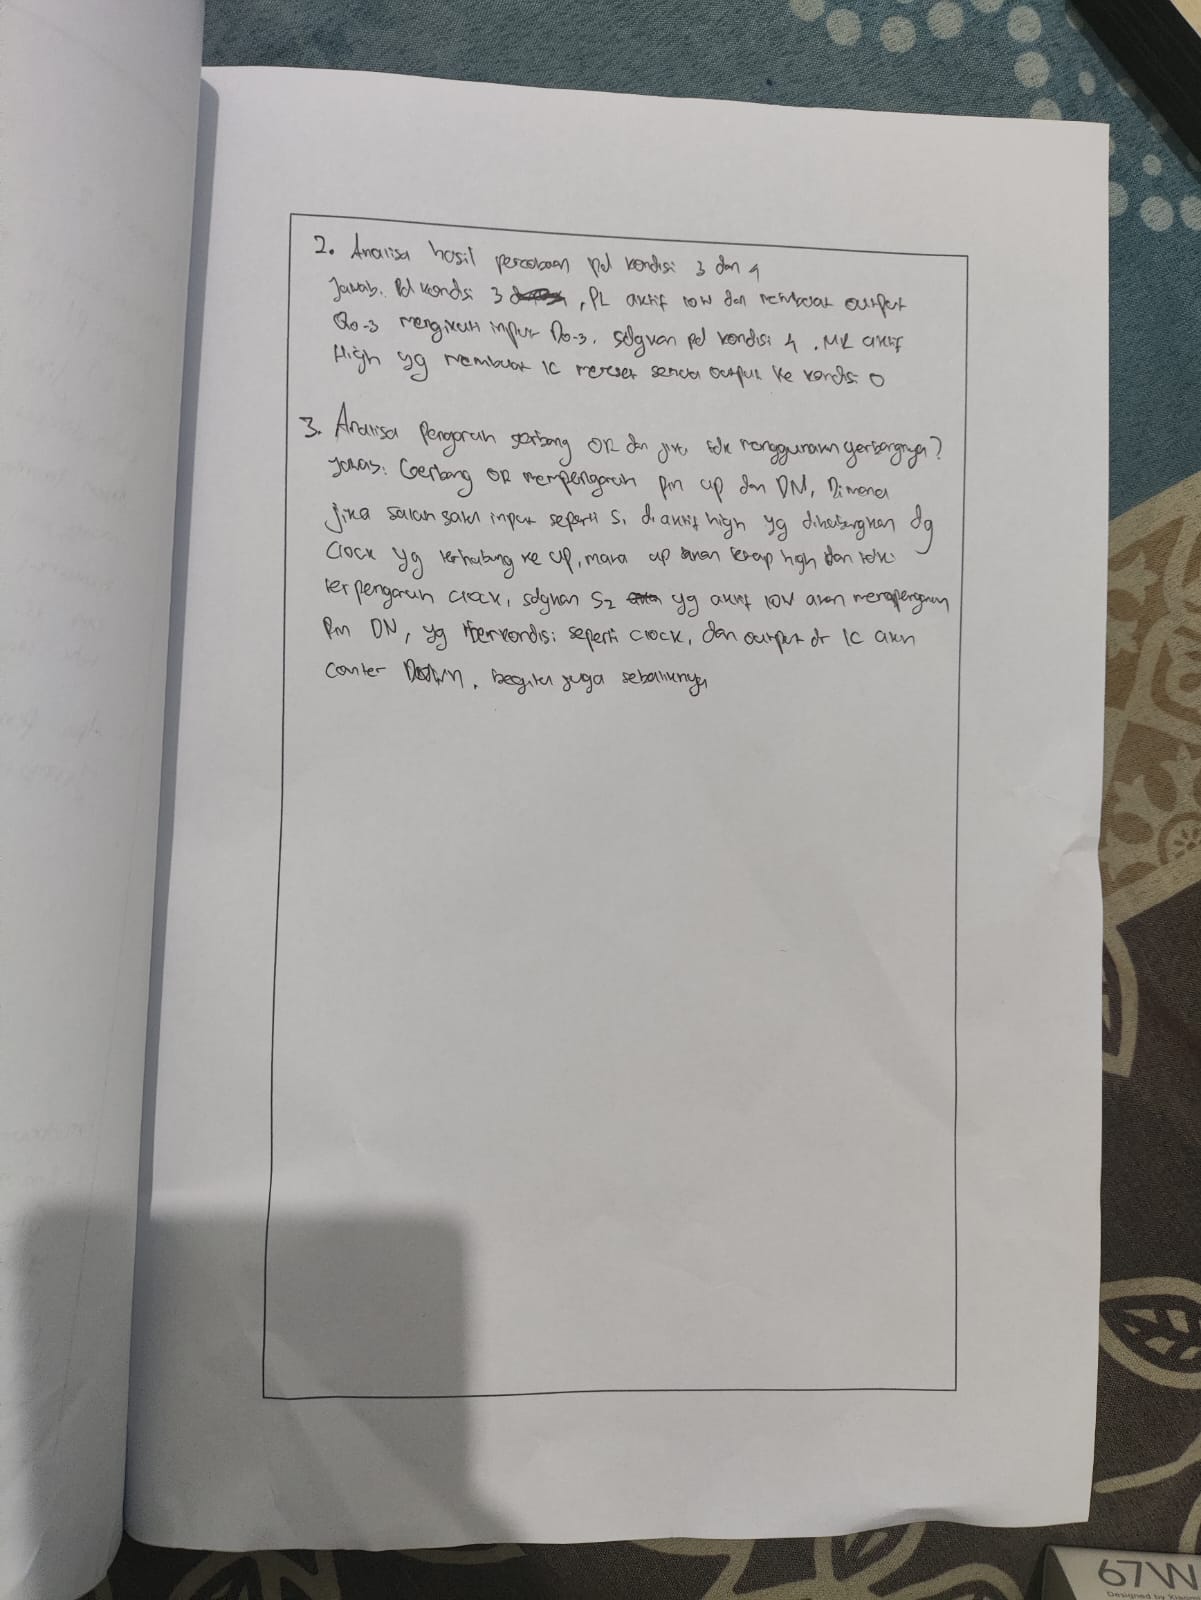 2. Analisa hasil percobaan pd kondisi 3 dan 4
Jawab. Pd kondsi 3, PL aktif low dan membuat output
Q0-3 mengikuti input D0-3, sdgkan pd kondisi 4, MR aktif
High yg membuat IC mereset semua output ke kondsi 0
3. Analisa Pengaruh gerbang OR dan jika tdk menggunakn gerbangnya?
Jawab: Gerbang OR mempengaruhi Pin up dan DN, Dimana
jika salah satu input seperti S1 diaktif high yg dihubungkan dg
Clock yg terhubung ke UP, maka up akan tetap high dan tdk
terpengaruh clock, sdgkan S2 yg aktif low akan mempengaruhi
Pin DN, yg berkondisi seperti clock, dan output dr IC akn
Conter Down, begitu juga sebaliknya
67W
Designed by Xiao